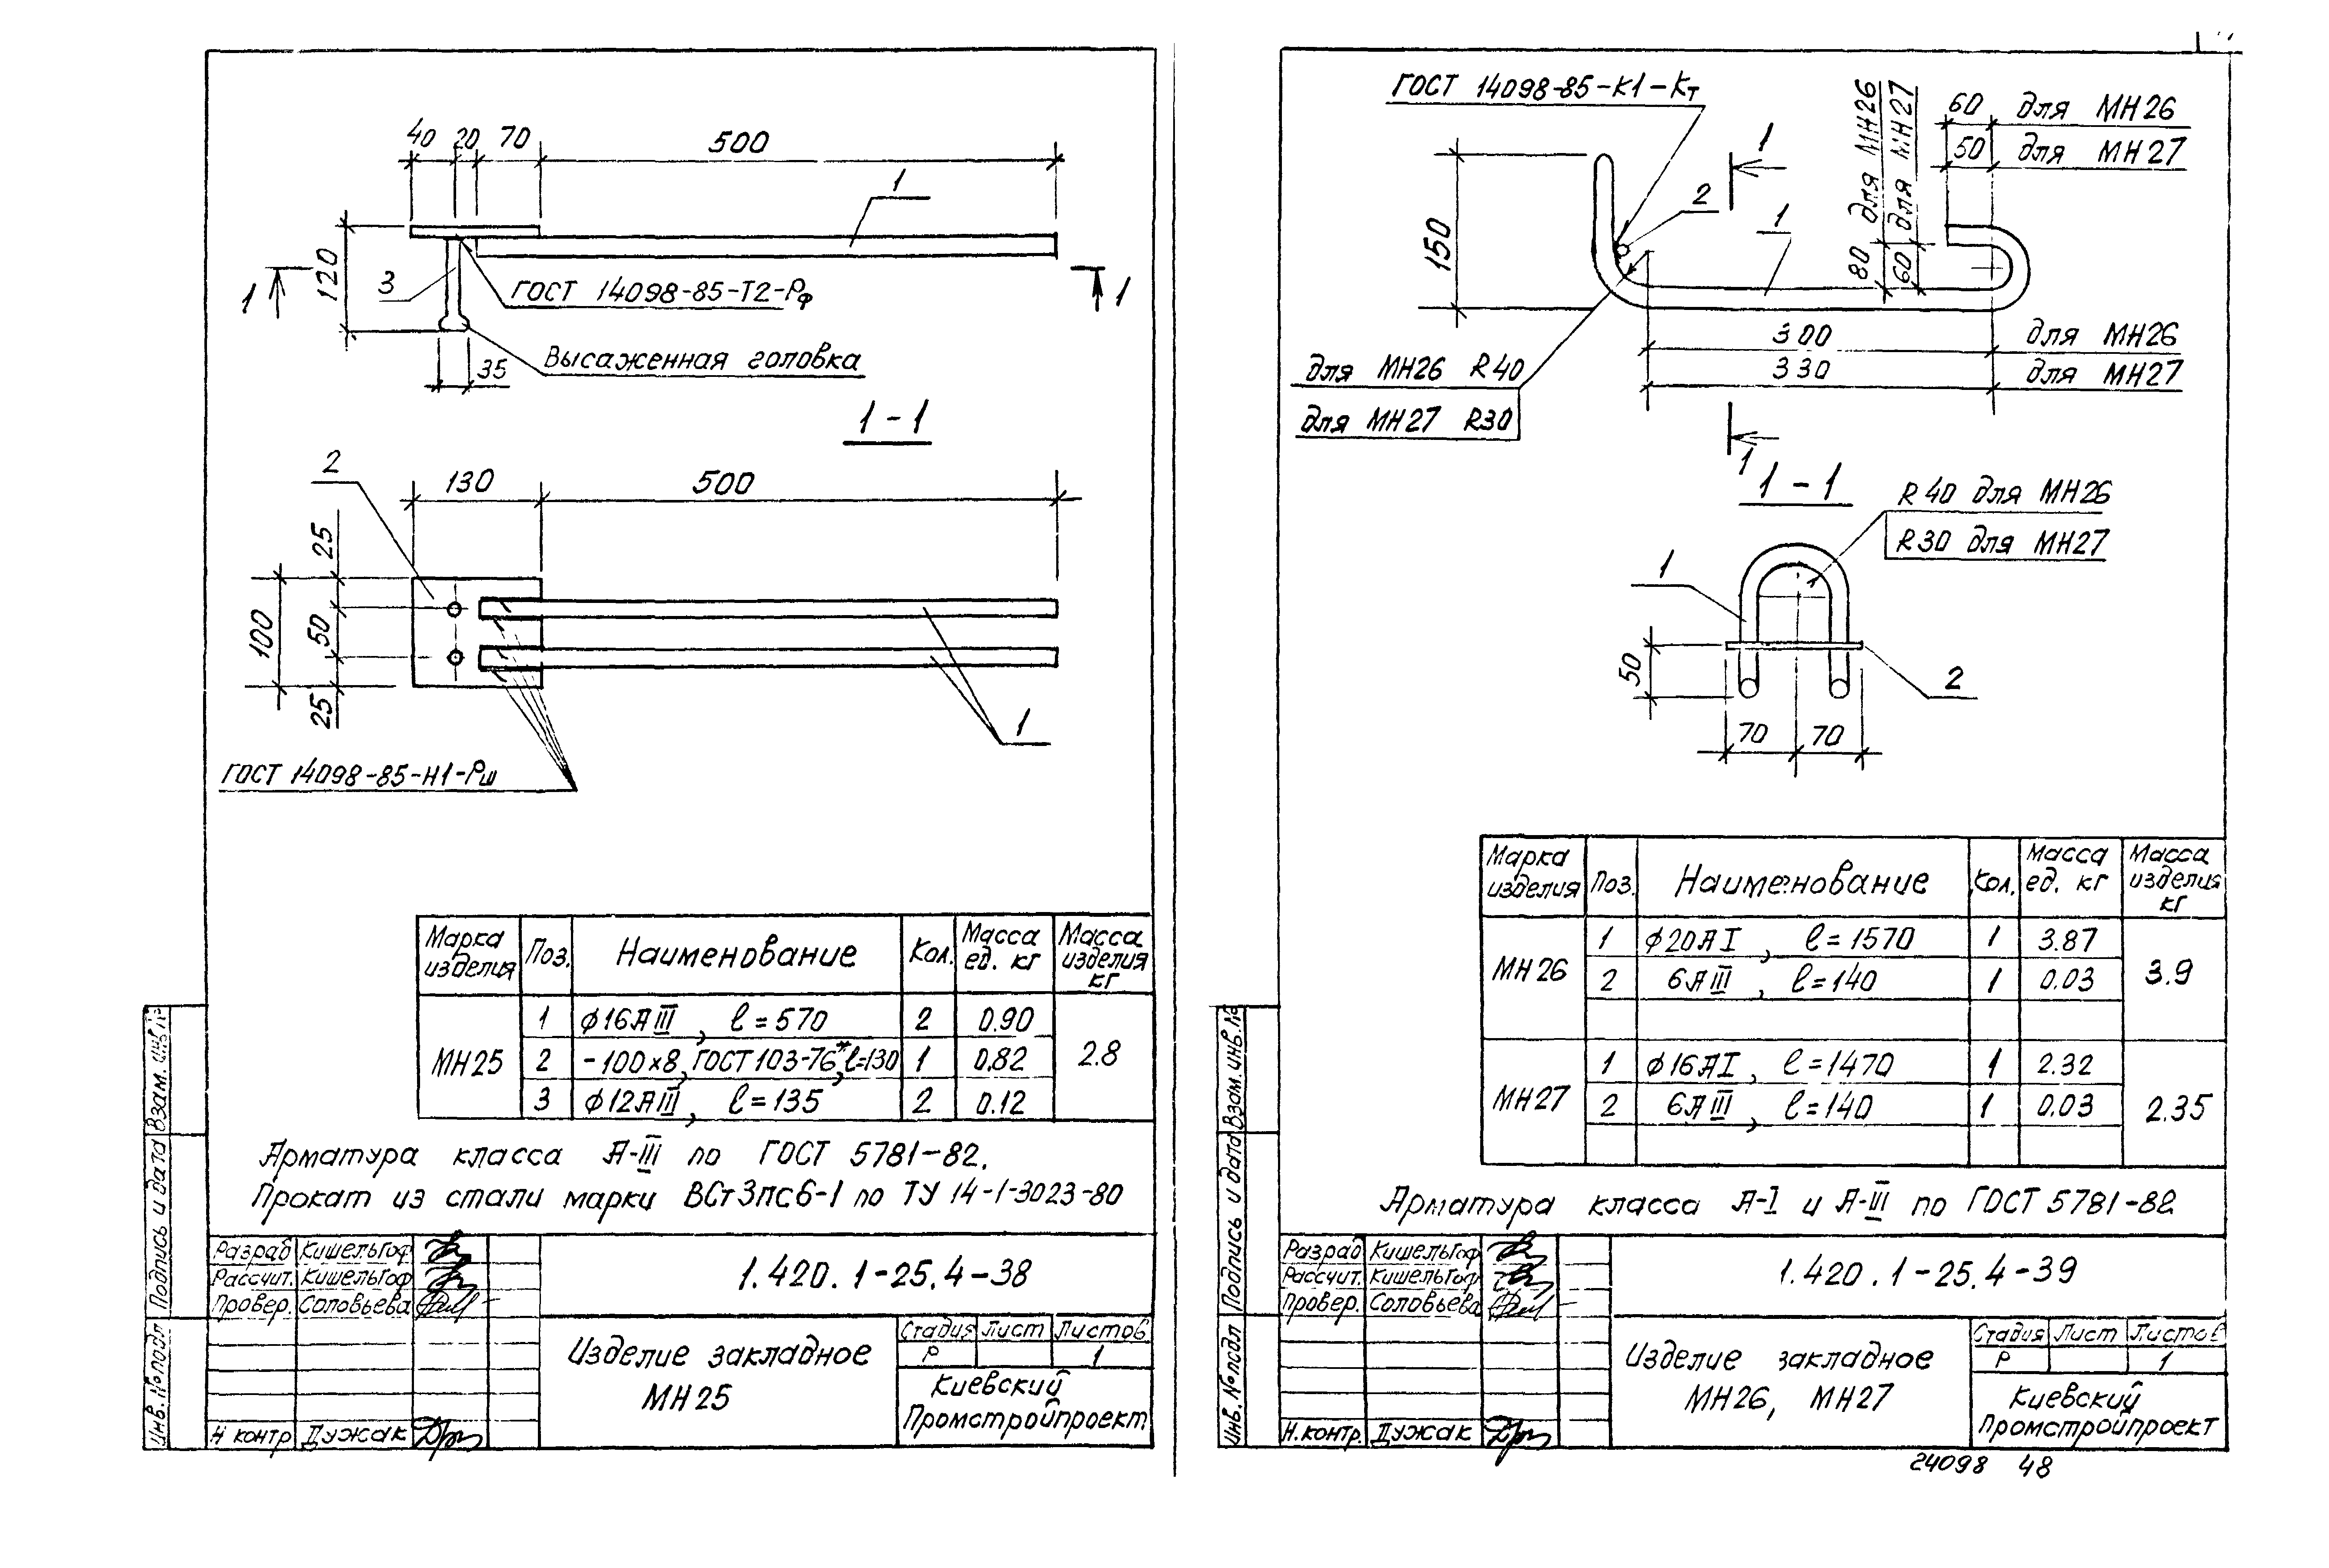 40 20 70 500
1
120
3
ГОСТ 14098-85-Т2-Рф
1 1
Высаженная головка
35
1-1
2
130 500
25
100
50
25
1
ГОСТ 14098-85-Н1-Рш
Марка изделия Поз. Наименование Кол. Масса ед. кг Масса изделия кг
МН25
1 ϕ16АIII, ℓ=570 2 0.90
2 -100×8, ГОСТ 103-76*, ℓ=130 1 0.82
3 ϕ12АIII, ℓ=135 2 0.12
2.8
Арматура класса А-III по ГОСТ 5781-82.
Прокат из стали марки ВСт3пс6-1 по ТУ 14-1-3023-80
Разраб Кишельгоф
Рассчит. Кишельгоф
Провер. Соловьева
Н контр Дужак
1.420.1-25.4-38
Изделие закладное
МН25
Стадия Лист Листов
Р 1
Киевский
Промстройпроект
Инв. № подл
Подпись и дата
Взам. инв. №
ГОСТ 14098-85-К1-Кт
80 для МН26
60 для МН27
60 для МН26
50 для МН27
1
2
1
150
300 для МН26
330 для МН27
для МН26 R40
для МН27 R30
1
1-1
R40 для МН26
R30 для МН27
1
50
2
70 70
Марка изделия Поз. Наименование Кол. Масса ед. кг Масса изделия кг
МН26
1 ϕ20АI, ℓ=1570 1 3.87
2 6АIII, ℓ=140 1 0.03
3.9
МН27
1 ϕ16АI, ℓ=1470 1 2.32
2 6АIII, ℓ=140 1 0.03
2.35
Арматура класса А-I и А-III по ГОСТ 5781-82
Разраб Кишельгоф
Рассчит. Кишельгоф
Провер. Соловьева
Н.контр. Дужак
1.420.1-25.4-39
Изделие закладное
МН26, МН27
Стадия Лист Листов
Р 1
Киевский
Промстройпроект
Инв. № подл
Подпись и дата
Взам. инв. №
24098 48